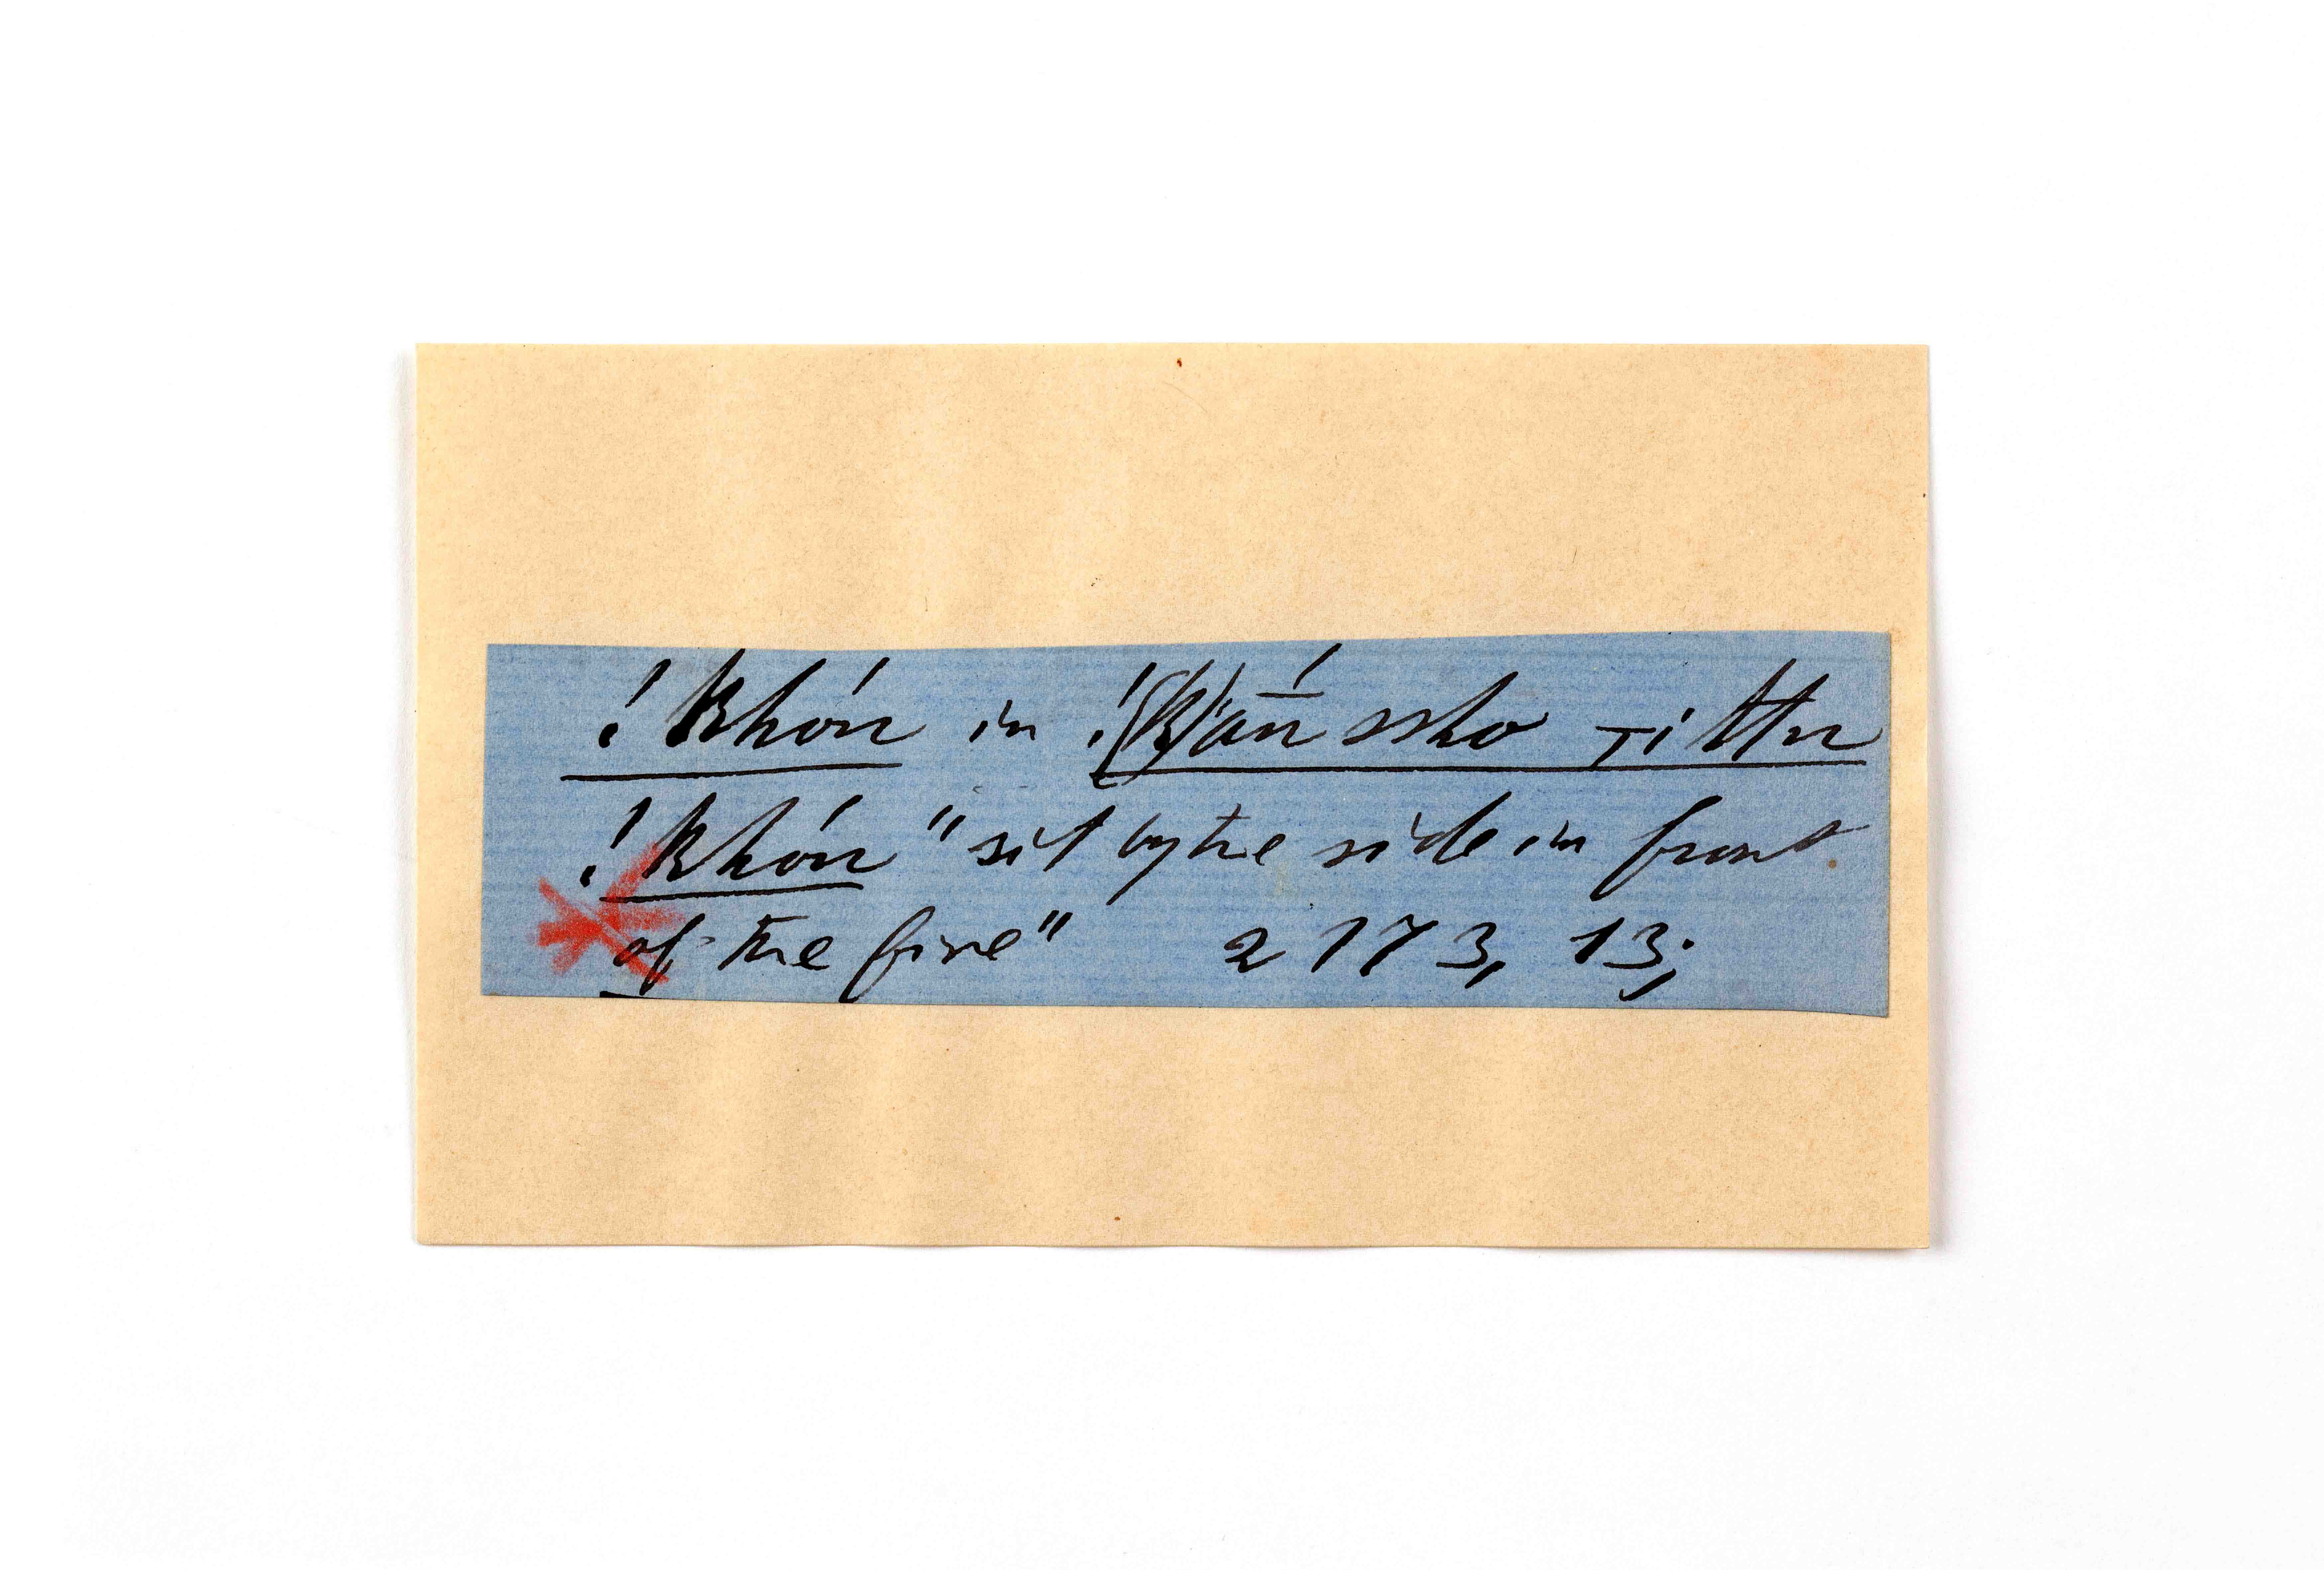 !khón in !(k)'āń ssho Ti ttu
!khón "sit by the side in front
of the fire" 2173, 13;